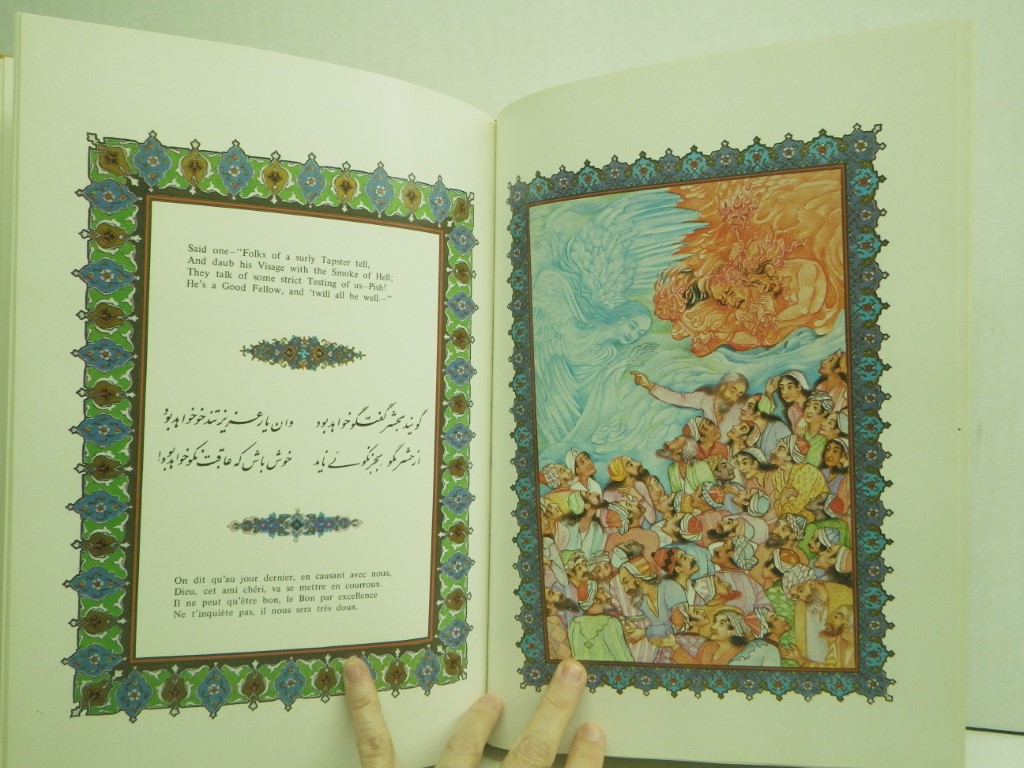 Said one—"Folks of a surly Tapster tell,
And daub his Visage with the Smoke of Hell;
They talk of some strict Testing of us—Pish!
He's a Good Fellow, and 'twill all be well.—"
گویند بحشر گفتگو خواهد بود وان یار عزیز تندخو خواهد بود
از بجز نکوئی ناید خوش باش که عاقبت نکو خواهد بود
On dit qu'au jour dernier, en causant avec nous,
Dieu, cet ami chéri, va se mettre en courroux.
Il ne peut qu'être bon, le Bon par excellence
Ne t'inquiète pas, il nous sera très doux.